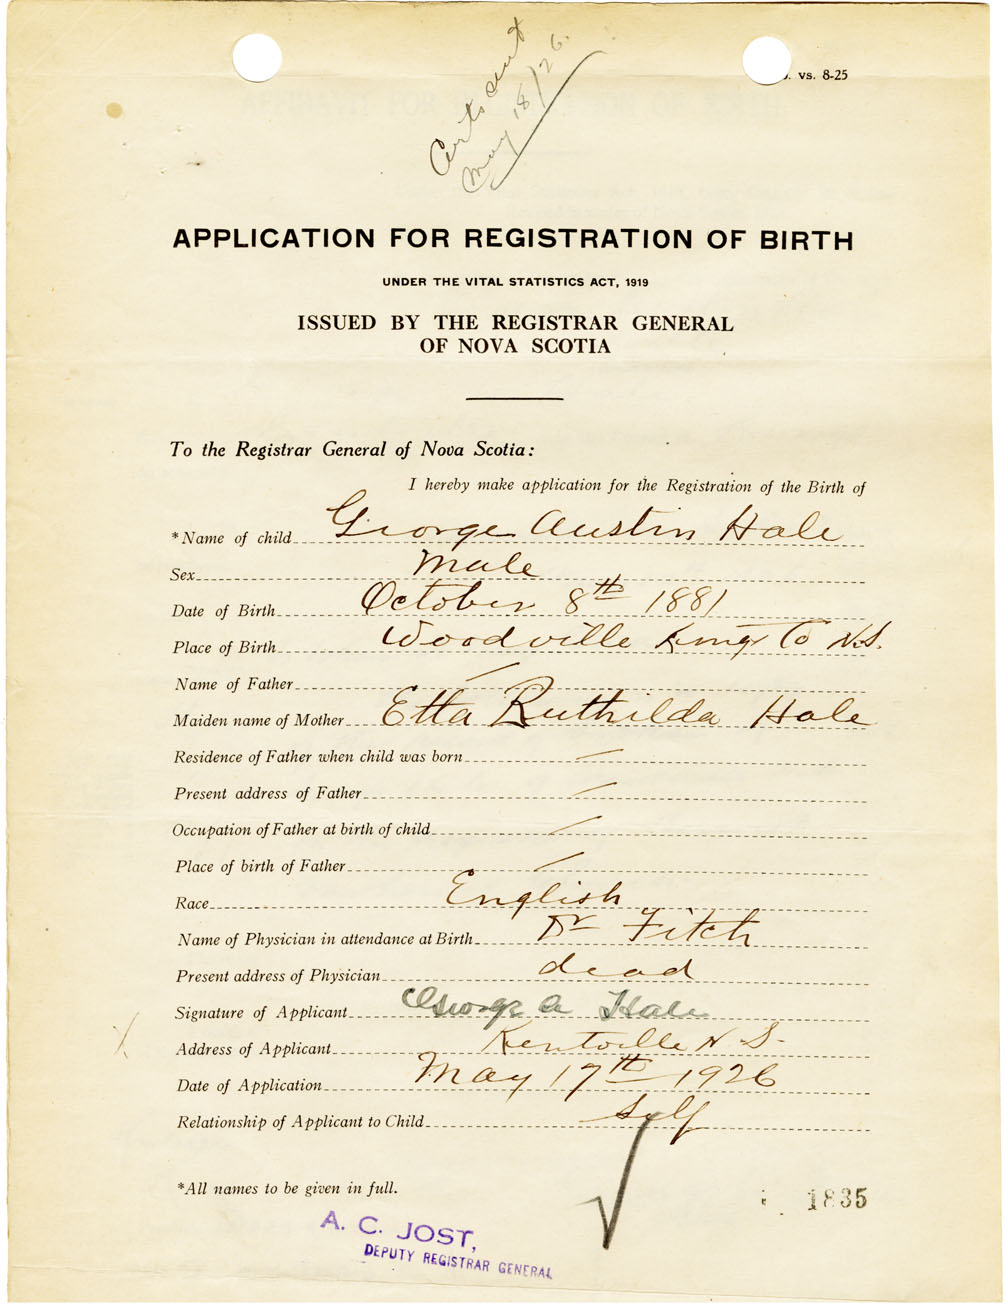 Cert sent
May 18/26.
. vs. 8-25
APPLICATION FOR REGISTRATION OF BIRTH
UNDER THE VITAL STATISTICS ACT, 1919
ISSUED BY THE REGISTRAR GENERAL
OF NOVA SCOTIA
To the Registrar General of Nova Scotia:
I hereby make application for the Registration of the Birth of
*Name of child George Austin Hale
Sex Male
Date of Birth October 8th 1881
Place of Birth Woodville Kings Co N.S.
Name of Father /
Maiden name of Mother Etta Ruthilda Hale
Residence of Father when child was born /
Present address of Father /
Occupation of Father at birth of child /
Place of birth of Father /
Race English
Name of Physician in attendance at Birth Dr Fitch
Present address of Physician dead
Signature of Applicant George A Hale
Address of Applicant Kentville N S-
Date of Application May 17th 1926
Relationship of Applicant to Child Self
*All names to be given in full.
1835
A. C. JOST,
DEPUTY REGISTRAR GENERAL